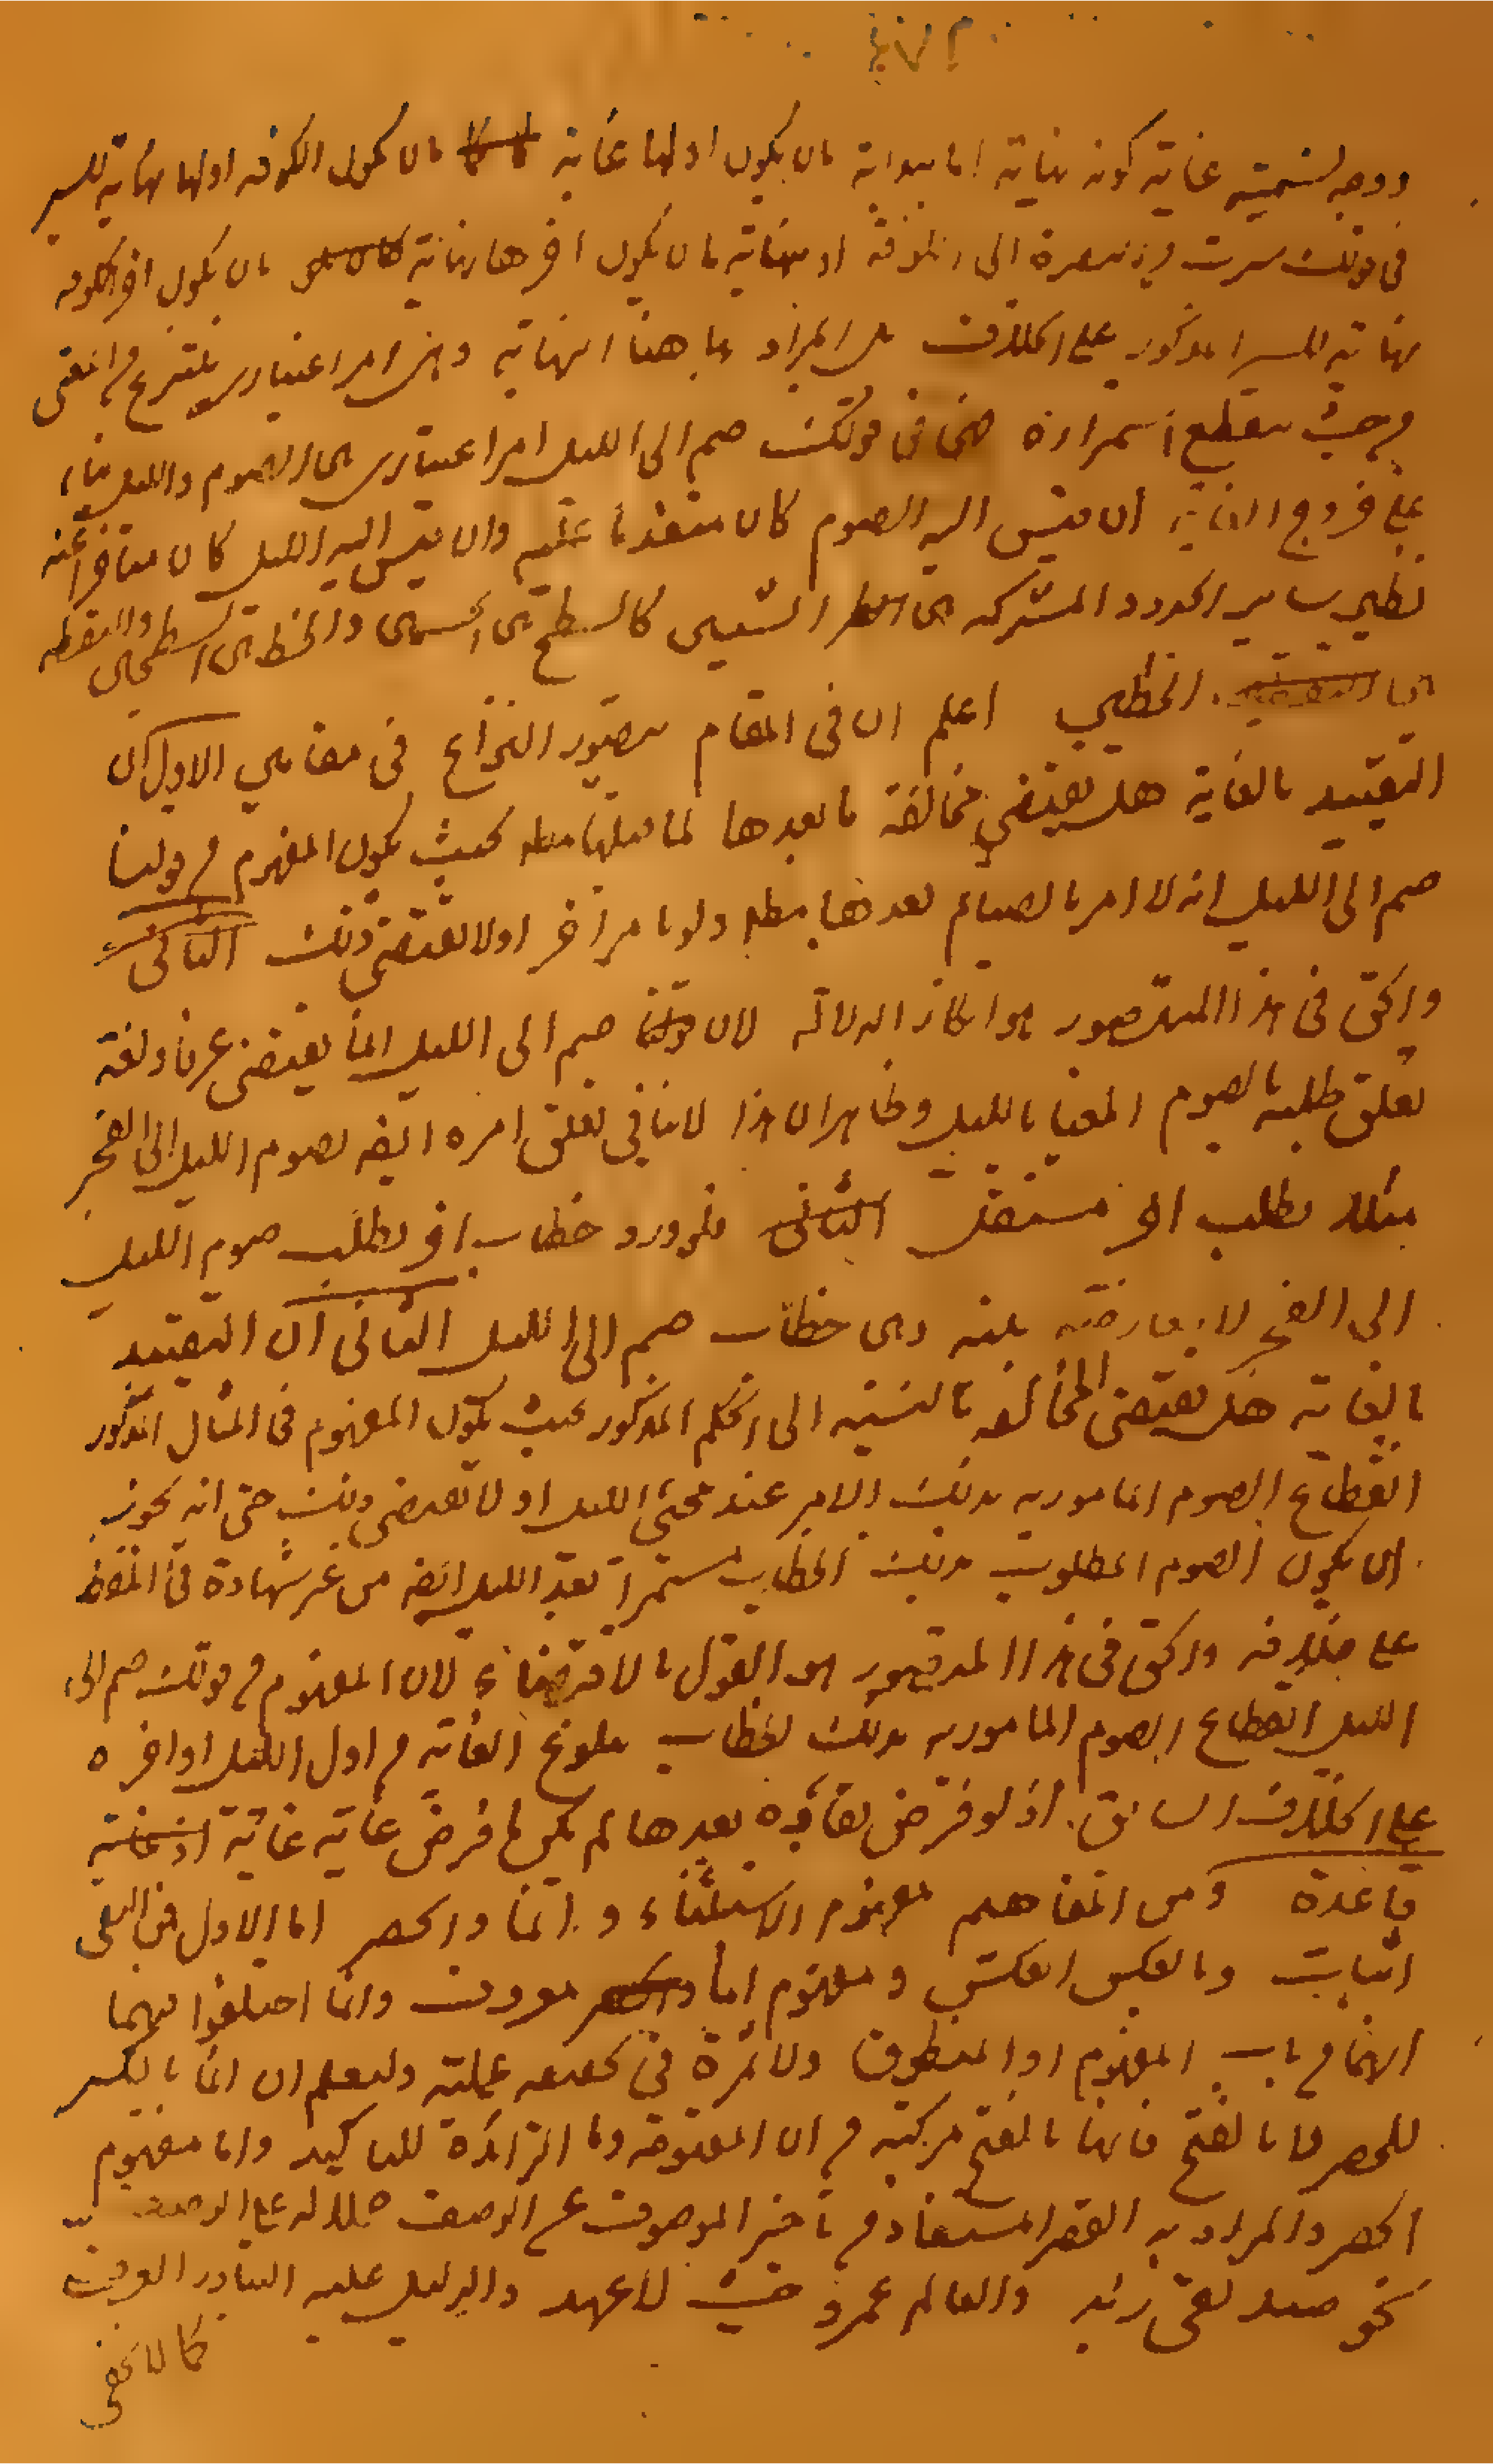 ووجه تسميته غاية كونه نهاية اما ببداية بان يكون اولها غاية بان يكون الكوفة اولها نهاية للسير
فى قولك سرت من البصرة الى الكوفة او بنهاية بان يكون اخرها نهاية بان يكون اخر الكوفة
نهاية للسير المذكور على الخلاف بل المراد بها هنا النهاية وهى امر اعتبارى ينتزع من المغيى
من حيث ينقطع استمراره فهى فى قولك صم الى الليل امر اعتبارى بين الصوم والليل بناء
على خروج الغاية ان قيس اليه الصوم كان متقدما عليه وان قيس اليه الليل كان متاخرا عنه
نظير ساير الحدود المشتركة بين الشيئين كالسطح بين الجسمين والخط بين السطحين والنقطة
بين الخطين اعلم ان فى المقام يتصور النزاع فى مقامين الاول ان
التقييد بالغاية هل يقتضى مخالفة ما بعدها لما قبلها مطلقا بحيث يكون المفهوم من قولنا
صم الى الليل انه لا امر بالصيام بعدها مطلقا ولو بامر اخر اولا يقتضى ذلك
والحق فى هذا المقصور هو انكار الدلالة لان قولنا صم الى الليل انما يقتضى عرفا ولغة
تعلق طلبه بالصوم المغيا بالليل وظاهر ان هذا لا ينافى تعلق امره ايضا بصوم الليل الى الفجر
مثلا بطلب اخر مستقل فلو ورد خطاب اخر بطلب صوم الليل
الى الفجر لا يعارضه بينه وبين خطاب صم الى الليل الثانى ان التقييد
بالغاية هل يقتضى المخالفة بالنسبة الى الحكم المذكور بحيث يكون المفهوم فى المثال المذكور
انقطاع الصوم المامور به بذلك الامر عند مجئ الليل او لا يقتضى ذلك حتى انه يجوز
ان يكون الصوم المطلوب بذلك الخطاب مستمرا بعد الليل ايضا من غير شهادة فى اللفظ
على خلافه والحق فى هذا المقصور هو القول بالاقتضاء لان المفهوم من قولك صم الى
الليل انقطاع الصوم المامور به بذلك الخطاب ببلوغ الغاية من اول الليل او اخره
على الخلاف السابق اذ لو فرض بقاؤه بعدها لم يكن ما فرض غاية غاية
قاعدة ومن المفاهيم مفهوم الاستثناء و انما والحصر اما الاول فمن النفى
اثبات وبالعكس العكس و مفهوم انما معروف وانما اختلفوا فيهما
انهما من باب المفهوم او المنطوق ولا ثمرة فى تحقيقه عملية وليعلم ان انما بالكسر
للحصر لا بالفتح فانها بالفتح مركبة من ان المفتوحة وما الزائدة للتاكيد واما مفهوم
الحصر والمراد به القصر المستفاد من تاخير الموصوف عن الوصف على الوصف
نحو صديقى زيد والعالم عمرو حيث لا عهد والدليل عليه التبادر العرفى
كما لا يخفى